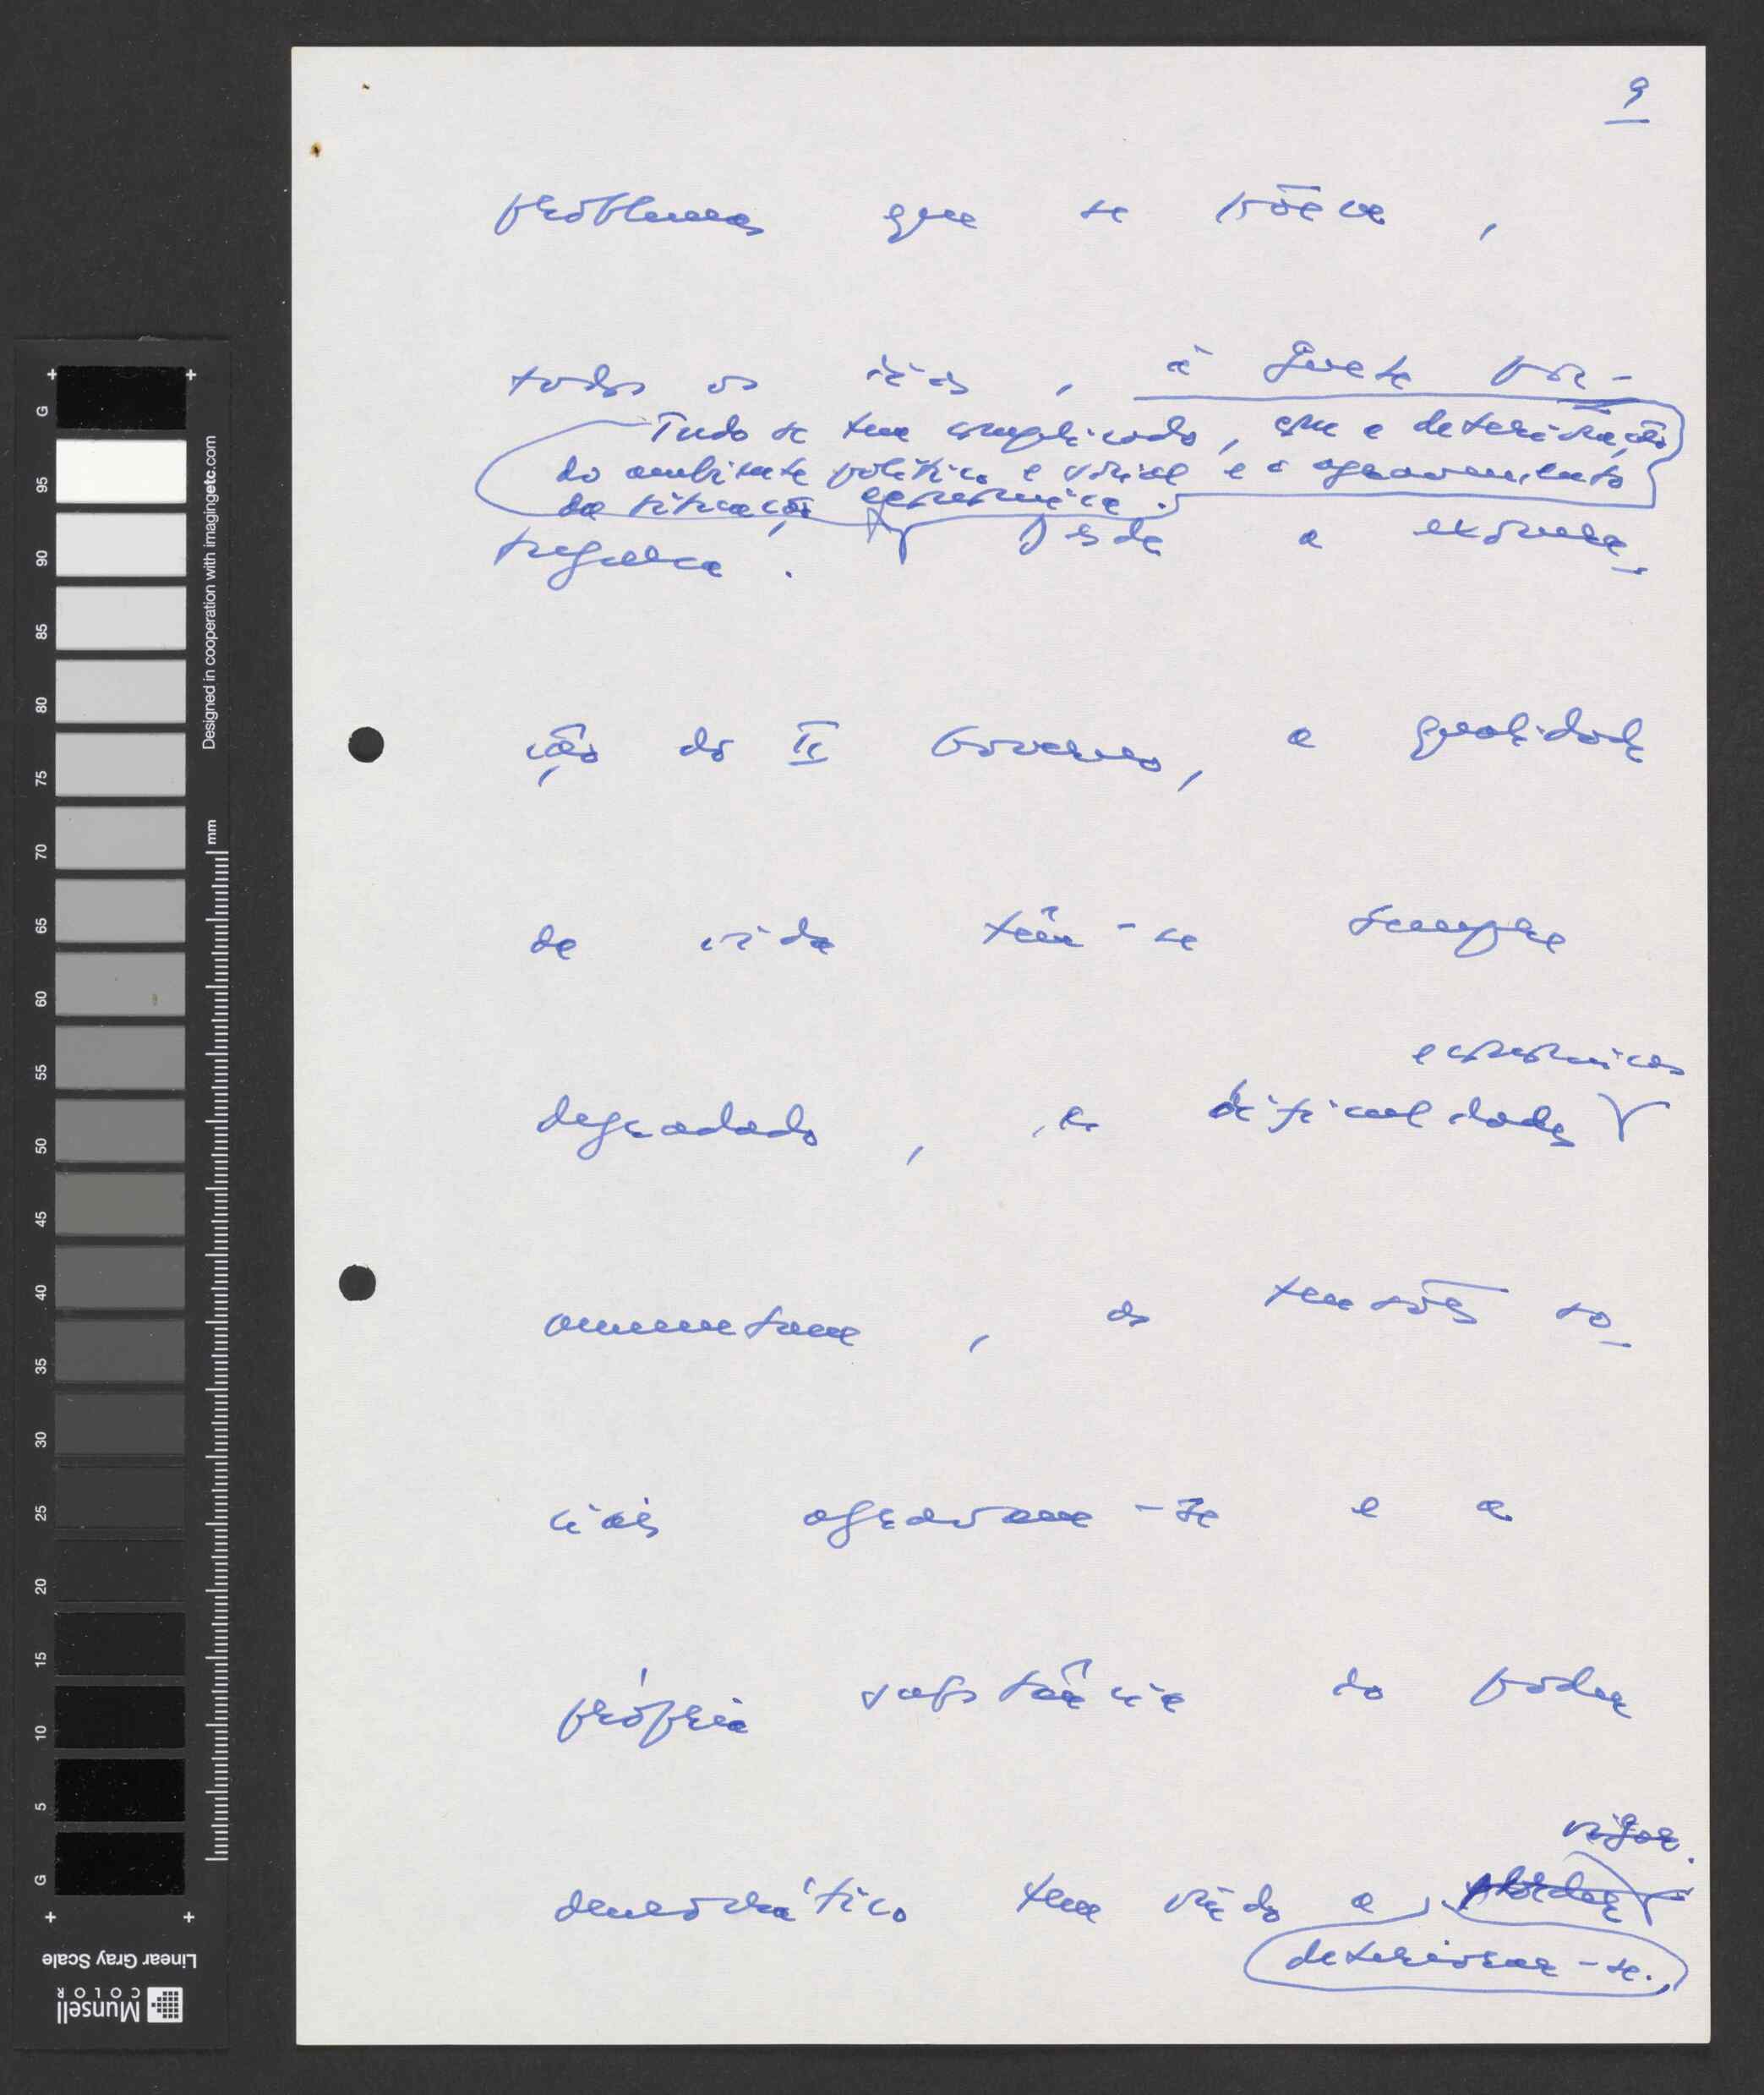 9
problemas que se põem,
todos os dias, à gente por-
Tudo se tem complicado, com a deterioração
do ambiente político e social e o agravamento
da situação económica.
tuguesa. Desde a exonera-
ção do II Governo, a qualidade
da vida tem-se sempre
degradado, as dificuldades
económicas
aumentam, as tensões so-
ciais agravam-se e a
própria substância do poder
vigor.
democrático tem vindo a perder
deteriorar-se.
G 95 90 85 80 75 70 65 60 55 50 45 40 35 30 25 20 15 10 5 G
Designed in cooperation with imagingetc.com
mm
Linear Gray Scale
Munsell
COLOR